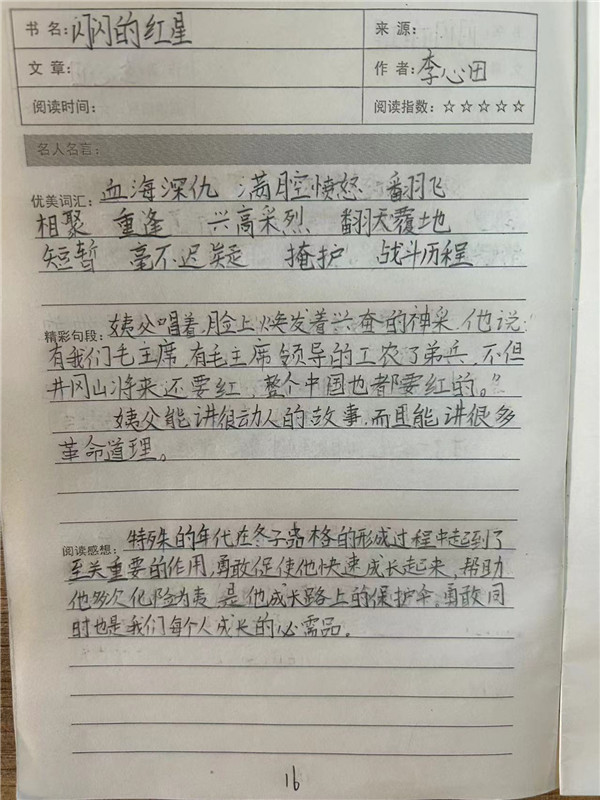 书 名: 闪闪的红星 来 源:
文 章: 作 者: 李心田
阅读时间: 阅读指数: ☆☆☆☆☆
名人名言:
优美词汇: 血海深仇 满腔愤怒 翻飞
相聚 重逢 兴高采烈、 翻天覆地
短暂 毫不迟疑 掩护 战斗历程
精彩句段: 姨父唱着,脸上焕发着兴奋的神采,他说
有我们毛主席,有毛主席领导的工农子弟兵,不但
井冈山将来还要红,整个中国也都要红的。”
姨父能讲很动人的故事,而且能讲很多
革命道理。
阅读感想: 特殊的年代在冬子品格的形成过程中起到了
至关重要的作用,勇敢促使他快速成长起来,帮助
他多次化险为夷,是他成长路上的保护伞。勇敢同
时也是我们每个人成长的必需品。
16